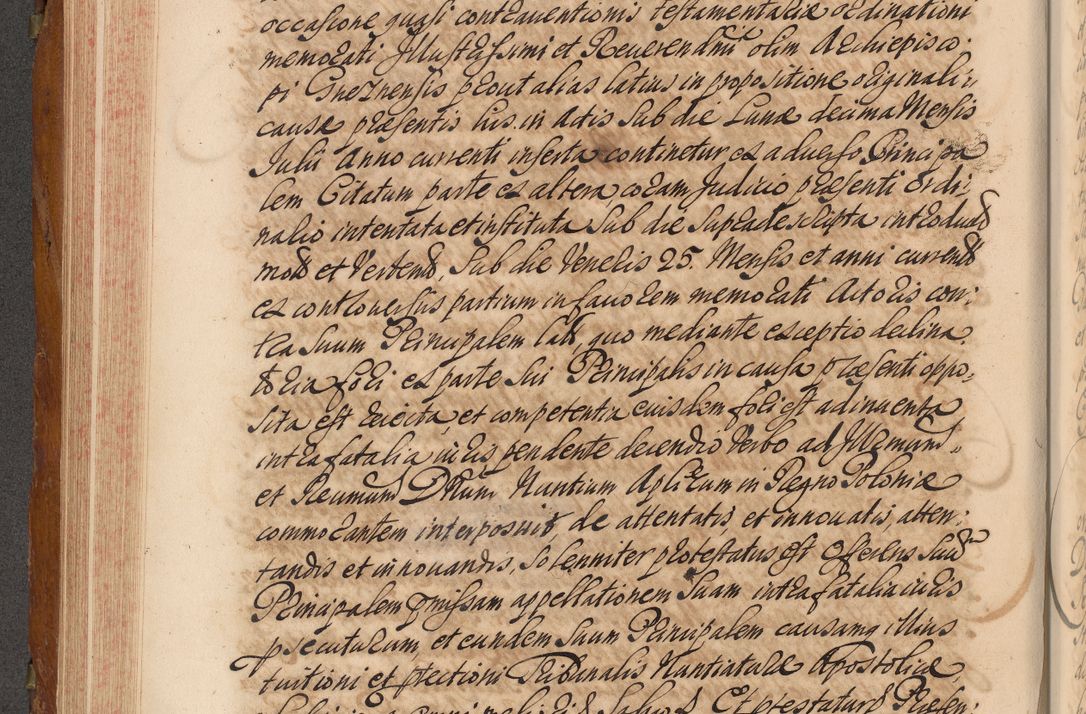 occasione quasi contraventionis testamentariæ ordinationi
memorati Illustrissimi et Reverendmi olim Archiepisco:
pi Gneznensis prout alias latius in propositione originali
causæ præsentis his in actis sub die Lunæ decima Mensis
Julii Anno currenti inserta continetur ex adverso Principa
lem Citatum parte ex altera coram Judicio præsenti ordi:
nario intentata et instituta sub die supradescripta introduct
mod et vertend, sub die Veneris 25. Mensis et anni current
ex controversiis partium in favorem memorati Actoris con:
tra suum Principalem lat, quo mediante exceptio declina
toria fori ex parte sui Principalis in causa præsenti oppo,
sita est reiecta et competentia eiusdem fori est adinventa
intra fatalia iuris pendente decendio verbo ad Illmum
et Reumum Dnum Nuntium Aplicum in Regno Poloniæ
commorantem interposuit, de attentatis, et innovatis, atten:
tandis et innovandis, solenniter protestatus est offerens suum
Principalem pmissam appellationem suam intra fatalia iuris
psecuturum et eundem suum Principalem causamq illius
tuitioni et ptectioni Tribunalis Nuntiaturæ Apostolicæ,
Et ptestatur Præsen: